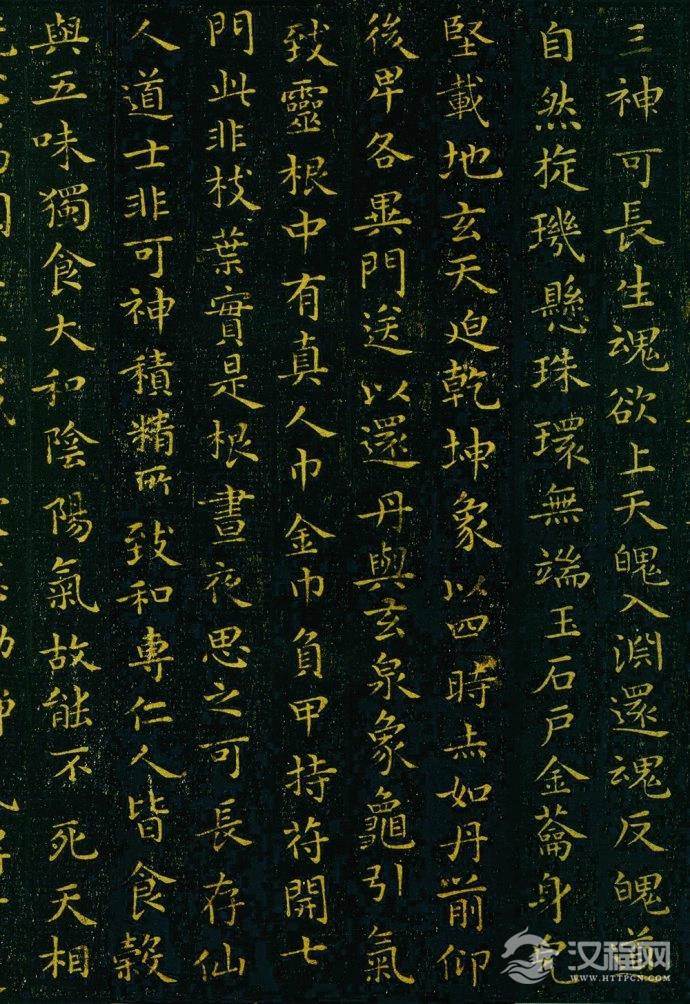 三神可長生魂欲上天魄入淵還魂反魄道
自然旋璣懸珠環無端玉石戶金蘥身完
堅載地玄天迫乾坤象以四時赤如丹前仰
後卑各異門送以還丹與玄泉象龜引氣
致靈根中有真人巾金巾負甲持苻開七
門此非枝葉實是根晝夜思之可長存仙
人道士非可神積精所致和專仁人皆食穀
與五味獨食大和陰陽氣故能不死天相
汉程网
WWW.HTTPCN.COM